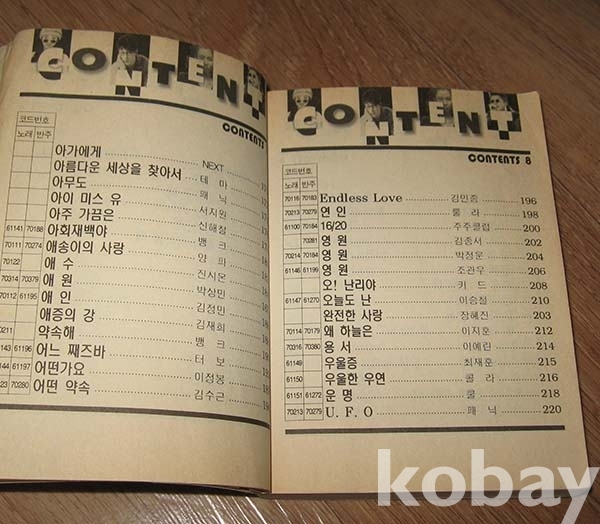 CONTENT
CONTENTS
코드번호
노래 반주
아가에게 NEXT
아름다운 세상을 찾아서 테 마
아무도 패 닉
아이 미스 유 서지원
아주 가끔은 신해철
61141 70188 아회재백야 뱅 크
70111 70274 애송이의 사랑 양 파
70122 애 수 진시몬
70314 70379 애 원 박상민
70112 61195 애 인 김정민
애증의 강 김재희
0211 약속해 뱅 크
143 61196 어느 째즈바 터 보
144 61197 어떤가요 이정봉
23 70280 어떤 약속 김수근
CONTENT
CONTENTS 8
코드번호
노래 반주
70116 70183 Endless Love 김민종 196
70213 70279 연 인 룰 라 198
61100 70184 16/20 주주클럽 200
70281 영 원 김종서 202
70214 70184 영 원 박정운 204
61146 61199 영 원 조관우 206
오! 난리야 키 드 208
61147 61270 오늘도 난 이승철 210
완전한 사랑 장혜진 203
70114 70179 왜 하늘은 이지훈 212
70316 70380 용 서 이예린 214
61149 우울증 최재훈 215
61150 우울한 우연 콜 라 216
61151 61272 운 명 쿨 218
70213 70279 U. F. O 패 닉 220
kobay